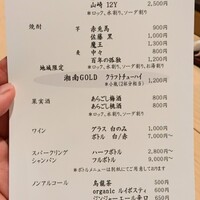 山崎 12Y 2,500円
*ロック、水割り、ソーダ割り
焼酎 芋 赤兎馬 900円
佐藤 黒 1,000円
魔王 1,300円
麦 中々 800円
百年の孤独 1,200円
*ロック、水割り、ソーダ割り、お湯割り
地域限定 湘南GOLD クラフトチューハイ 1,200円
果実酒 あらごし梅酒 800円
あらごし桃酒 800円
*ロック、水割り、ソーダ割り
ワイン グラス 白のみ 1,000円
ボトル 白/赤 7,000円
スパークリング ハーフボトル 2,800円
シャンパン フルボトル 9,000円
*ボトルメニューは別紙にてご用意しております
ノンアルコール 烏龍茶 500円
organic ルイボスティ 600円
ジンジャーエール辛口 650円